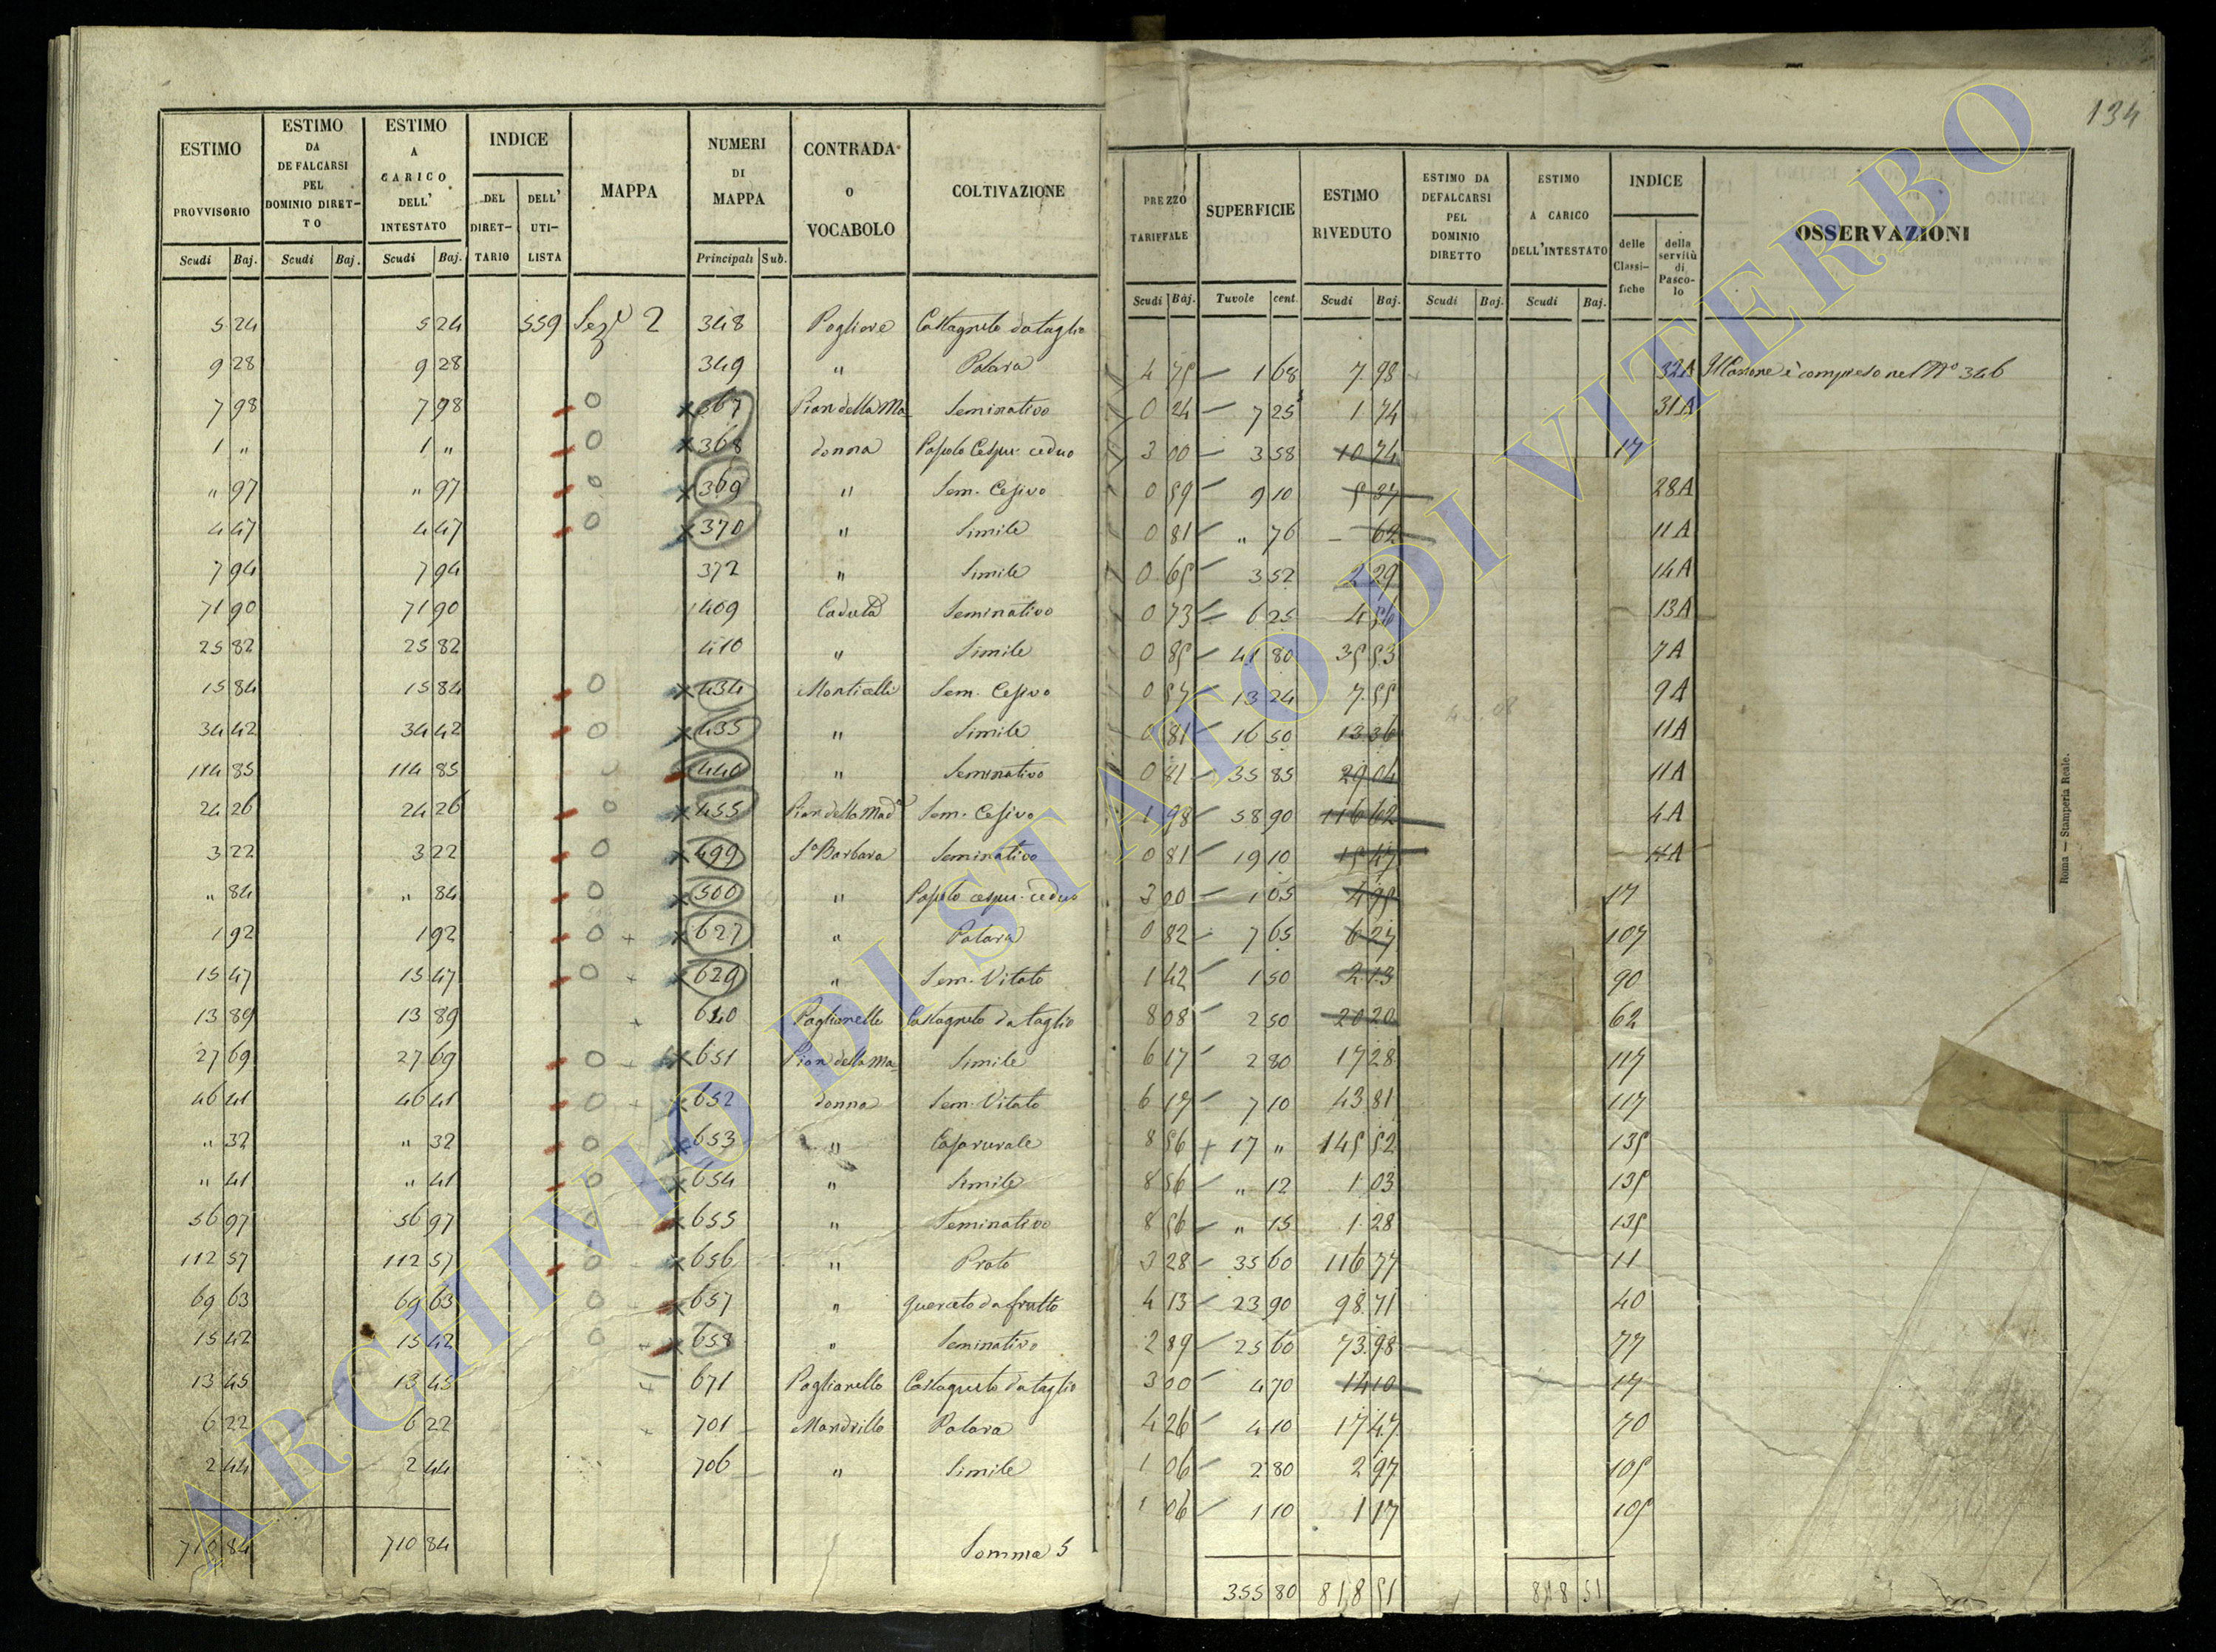 134
ESTIMO PROVVISORIO | ESTIMO DA DEFALCARSI PEL DOMINIO DIRETTO | ESTIMO A CARICO DELL' INTESTATO | INDICE DEL DIRETTARIO | DELL' UTILISTA | MAPPA | NUMERI DI MAPPA | CONTRADA o VOCABOLO | COLTIVAZIONE
Scudi Baj. | Scudi Baj. | Scudi Baj. | Principali Sub.
5 24 | 5 24 | 559 | Sez.e 2 | 348 | Pogliore | Castagneto da taglio
9 28 | 9 28 | 349 | " | Palara
7 98 | 7 98 | 0 | 367 | Pian della Ma- | Seminativo
1 " | 1 " | 0 | 368 | donna | Pascolo Cespu. ceduo
" 97 | " 97 | 0 | 369 | " | Sem. Cesivo
4 47 | 4 47 | 0 | 370 | " | Simile
7 94 | 7 94 | 372 | " | Simile
71 90 | 71 90 | 409 | Caduta | Seminativo
25 82 | 25 82 | 410 | " | Simile
15 84 | 15 84 | 0 | 434 | Monticelli | Sem. Cesivo
34 42 | 34 42 | 0 | 435 | " | Simile
114 85 | 114 85 | 440 | " | Seminativo
24 26 | 24 26 | 0 | 455 | Pian della Mad.a | Sem. Cesivo
3 22 | 3 22 | 0 | 499 | S.a Barbara | Seminativo
" 84 | " 84 | 0 | 500 | " | Pascolo cespu. ceduo
1 92 | 1 92 | 0 | 627 | " | Palara
15 47 | 15 47 | 0 | 629 | " | Sem. Vitato
13 89 | 13 89 | 640 | Paglianelle | Castagneto da taglio
27 69 | 27 69 | 0 | 651 | Pian della Ma- | Simile
46 41 | 46 41 | 0 | 652 | donna | Sem. Vitato
" 32 | " 32 | 0 | 653 | " | Casa rurale
" 41 | " 41 | 0 | 654 | " | Simile
56 97 | 56 97 | 0 | 655 | " | Seminativo
112 57 | 112 57 | 0 | 656 | " | Prato
69 63 | 69 63 | 0 | 657 | " | Querceto da frutto
15 42 | 15 42 | 0 | 658 | " | Seminativo
13 45 | 13 45 | 671 | Paglianello | Castagneto da taglio
6 22 | 6 22 | 701 | Mandrillo | Palara
2 44 | 2 44 | 706 | " | Simile
710 84 | 710 84 | Somma S
PREZZO TARIFFALE | SUPERFICIE | ESTIMO RIVEDUTO | ESTIMO DA DEFALCARSI PEL DOMINIO DIRETTO | ESTIMO A CARICO DELL'INTESTATO | INDICE delle Classifiche | della servitù di Pascolo | OSSERVAZIONI
Scudi Baj. | Tavole cent. | Scudi Baj. | Scudi Baj. | Scudi Baj.
4 75 | 1 68 | 7 98 | 32A | Il Casone è compreso nel N.o 346
0 24 | 7 25 | 1 74 | 31A
3 00 | 3 58 | 10 74 | 17
0 59 | 9 10 | 5 37 | 28A
0 81 | " 76 | - 62 | 11A
0 65 | 3 52 | 2 29 | 14A
0 73 | 6 25 | 4 56 | 13A
0 85 | 41 80 | 35 53 | 7A
0 57 | 13 24 | 7 55 | 9A
0 81 | 16 50 | 13 36 | 11A
0 81 | 35 85 | 29 04 | 11A
1 98 | 58 90 | 116 62 | 4A
0 81 | 19 10 | 15 47
3 00 | 1 05 | 17
0 82 | 7 65 | 6 27 | 107
1 42 | 1 50 | 2 13 | 90
8 08 | 2 50 | 20 20 | 62
6 17 | 2 80 | 17 28 | 117
6 17 | 7 10 | 43 81 | 117
8 56 | 17 " | 145 52 | 135
8 56 | " 12 | 1 03 | 135
8 56 | " 15 | 1 28 | 135
3 28 | 35 60 | 116 77 | 11
4 13 | 23 90 | 98 71 | 40
2 89 | 25 60 | 73 98 | 77
3 00 | 4 70 | 14 10 | 17
4 26 | 4 10 | 17 47 | 70
1 06 | 2 80 | 2 97 | 105
1 06 | 1 10 | 1 17 | 105
355 80 | 818 51 | 818 51
Roma — Stamperia Reale.
ARCHIVIO DI STATO DI VITERBO